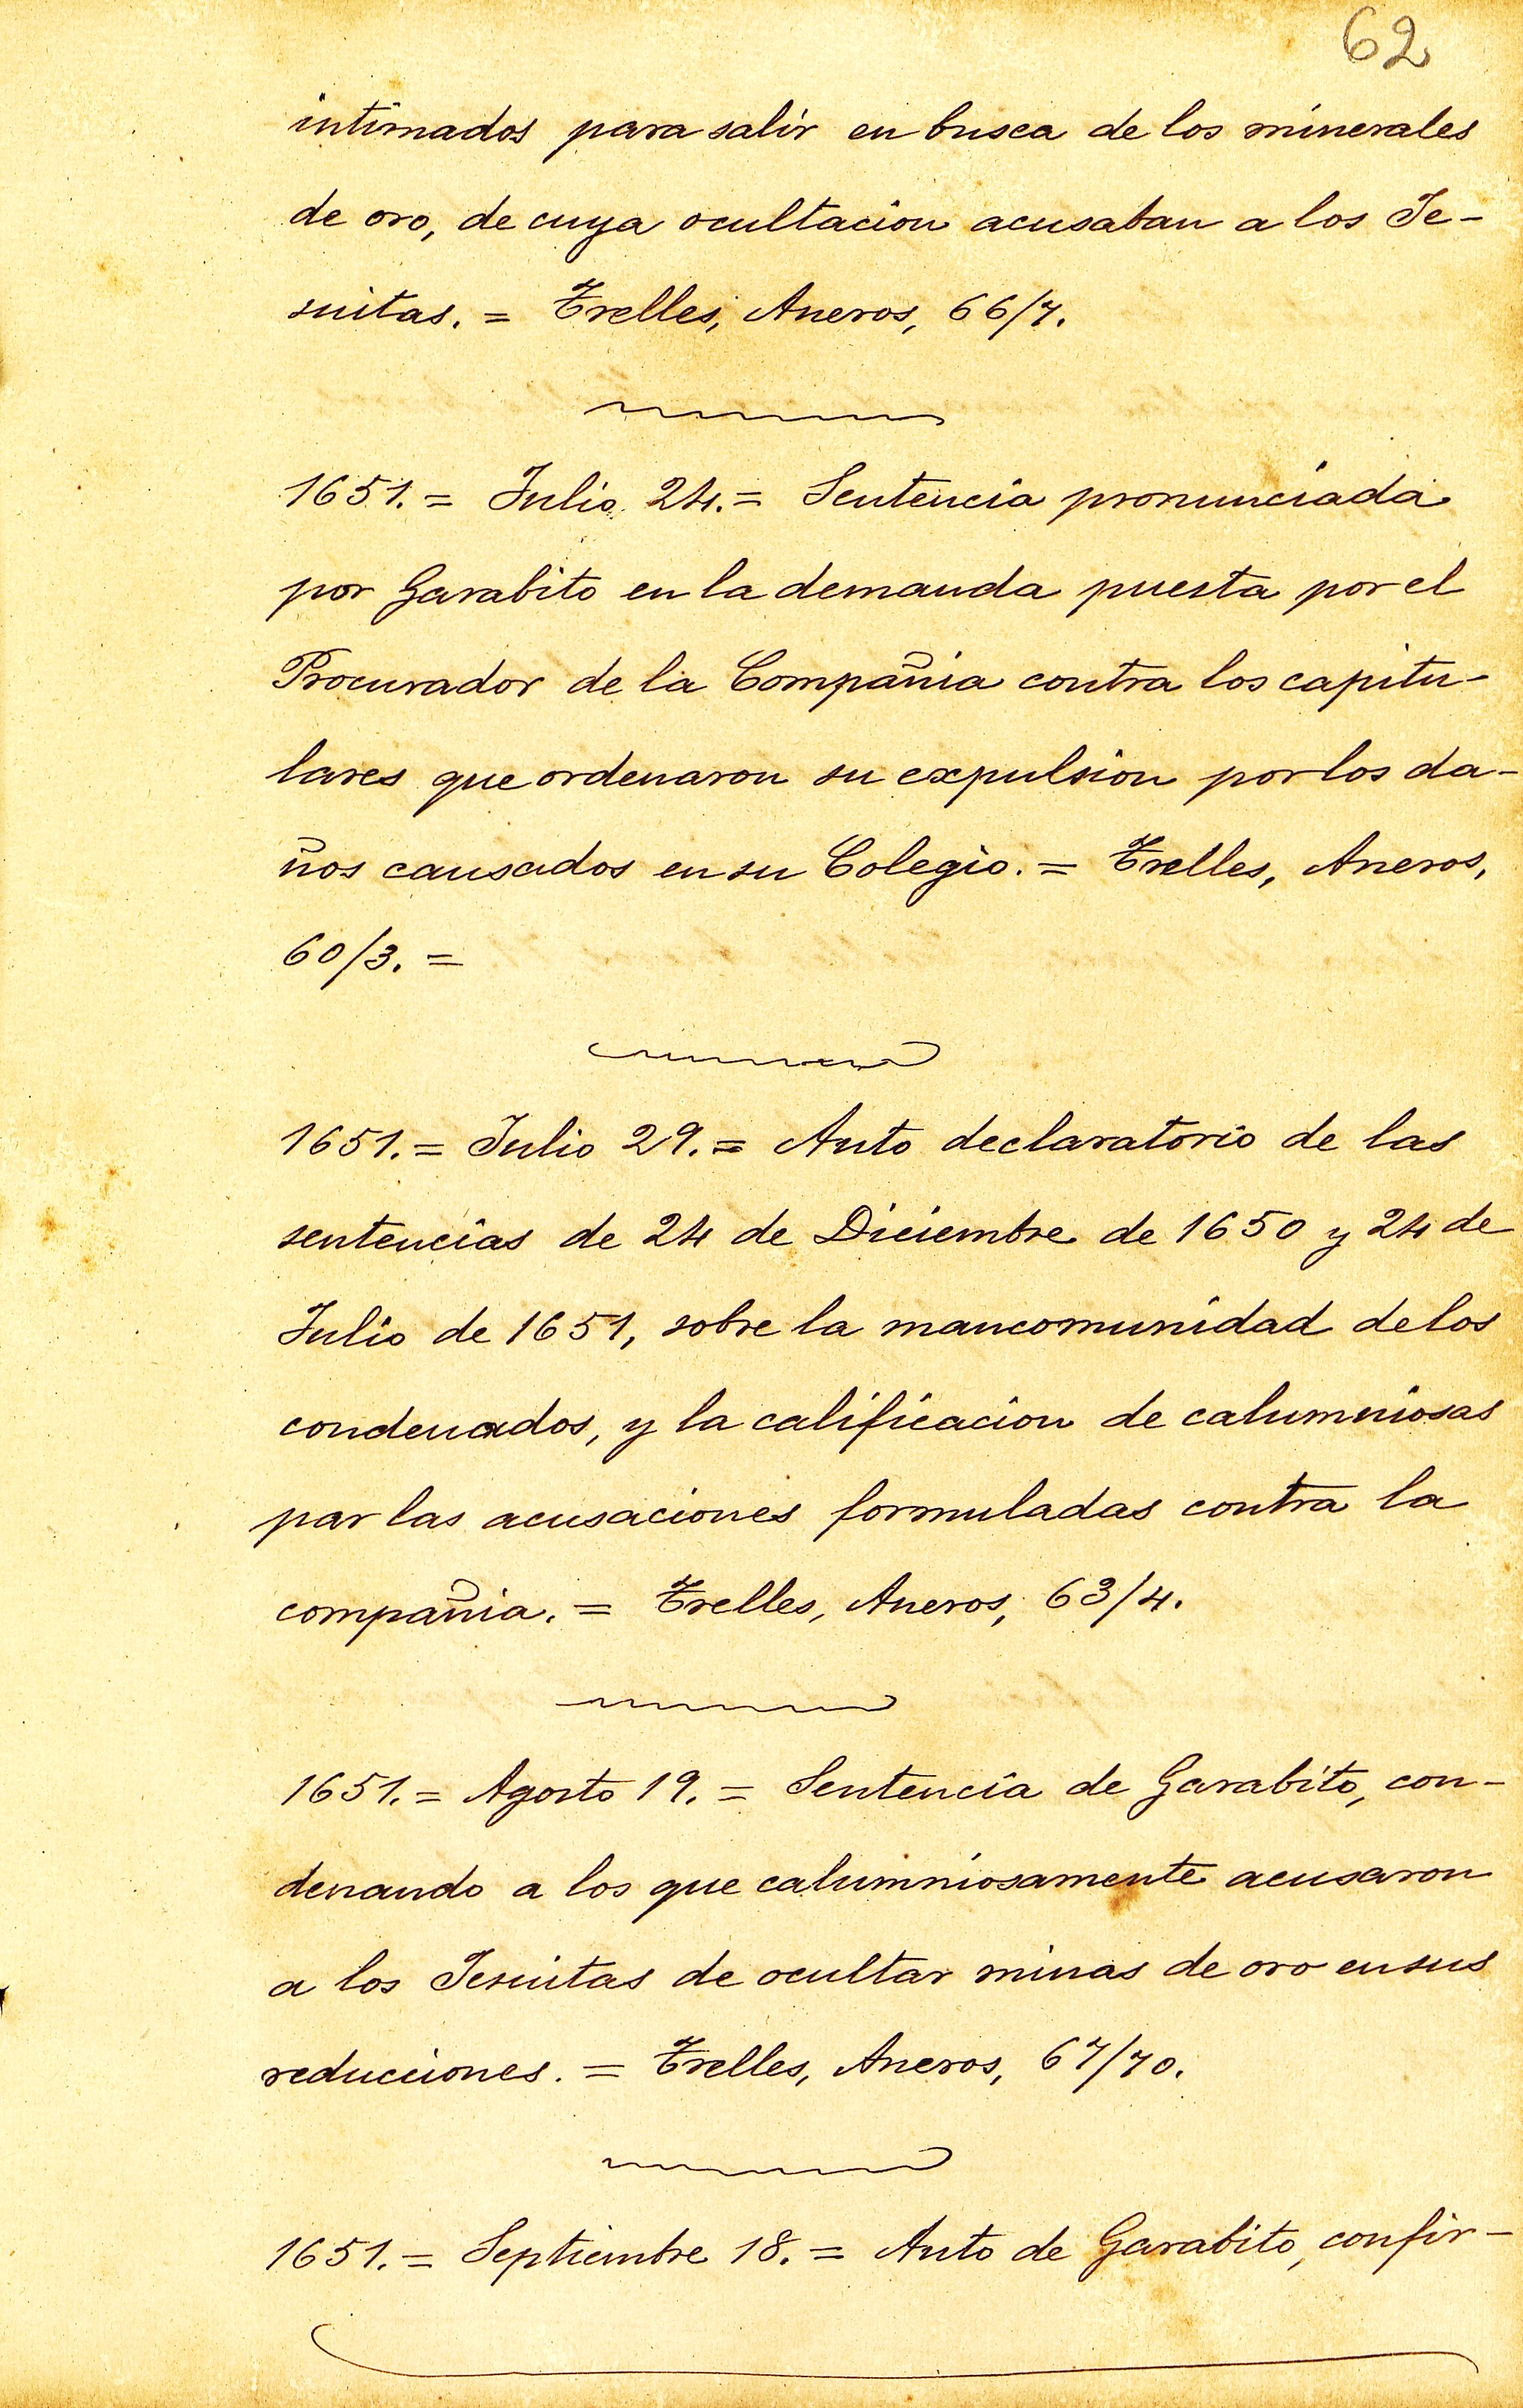 62
intimados para salir en busca de los minerales
de oro, de cuya ocultacion acusaban a los Je-
suitas. = Trelles, Aneros, 66/7.
1651. = Julio 24. = Sentencia pronunciada
por Garabito en la demanda puesta por el
Procurador de la Compañia contra los capitu-
lares que ordenaron su expulsion por los da-
ños causados en su Colegio. = Trelles, Aneros,
60/3. =
1651. = Julio 29. = Auto declaratorio de las
sentencias de 24 de Diciembre de 1650 y 24 de
Julio de 1651, sobre la mancomunidad de los
condenados, y la calificacion de calumniosas
par las acusaciones formuladas contra la
compañia. = Trelles, Aneros, 63/4.
1651. = Agosto 19. = Sentencia de Garabito, con-
denando a los que calumniosamente acusaron
a los Jesuitas de ocultar minas de oro en sus
reducciones. = Trelles, Aneros, 67/70.
1651. = Septiembre 18. = Auto de Garabito, confir-